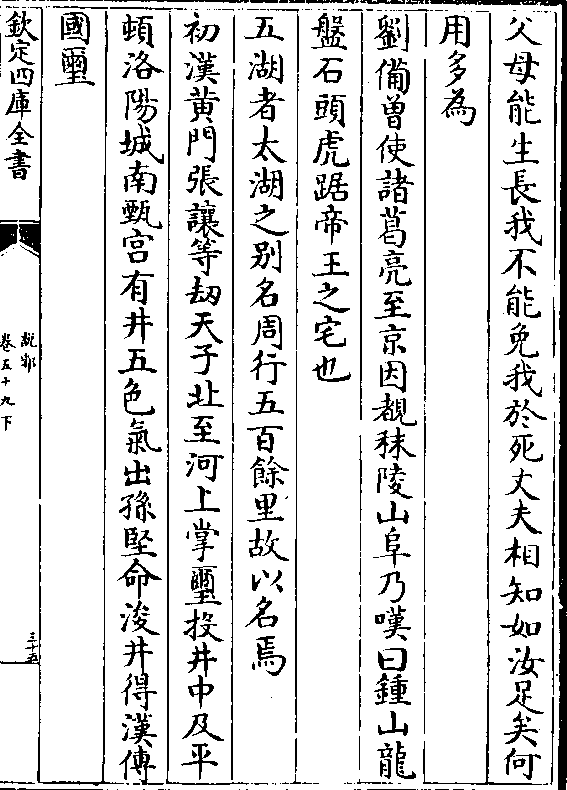 父母能生長我不能免我於死丈夫相知如汝足矣何
用多為
劉備曽使諸葛亮至京因覩秣陵山阜乃嘆曰鍾山龍
盤石頭虎踞帝王之宅也
五湖者太湖之别名周行五百餘里故以名焉
初漢黄門張讓等刼天子北至河上掌璽投井中及平
頓洛陽城南甄宫有井五色氣出孫堅命浚井得漢傳
國璽
欽定四庫全書
說郛
卷五十九下
三十五